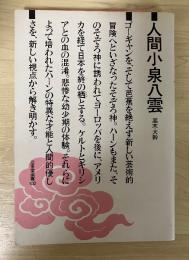 人間小泉八雲
高木大幹
ゴーギャンを、そして芭蕉を絶えず新しい芸術的
冒険へといざなったそぞろ神。ハーンもまた、そ
のそぞろ神に誘われてヨーロッパを後に、アメリ
カを経て日本を終の栖とする。ケルトとギリシ
アとの血の混淆。悲惨な幼少期の体験。それらに
よって培われたハーンの特異な才能と人間的優し
さを、新しい視点から解き明かす。
三省堂選書